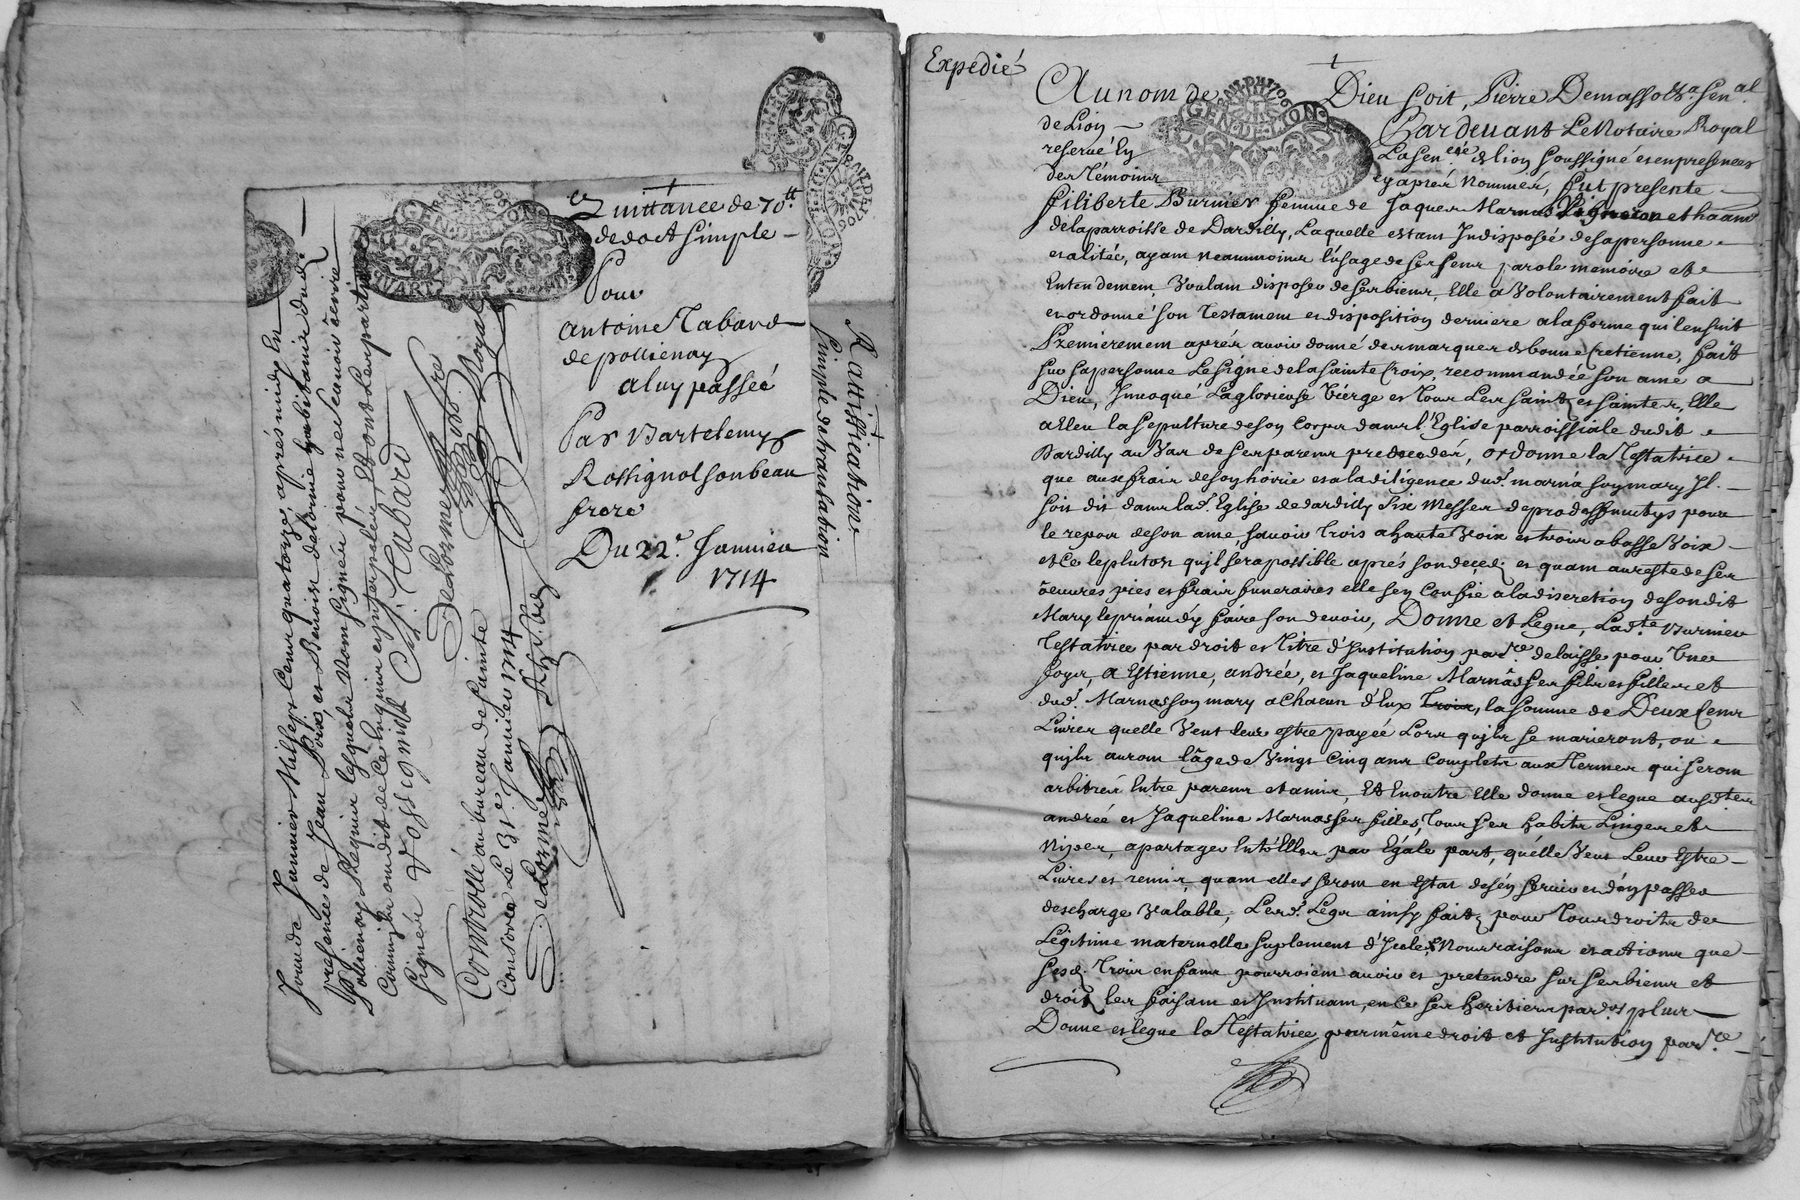 Quittance de 70.tt
de doct simple
Pour
Antoine Tabard
de pollienay
a luy passeé
Par Bartelemy
Rossignol son beau
frere
Du 22e. Janvier
1714
Rattiffication
simple de translation
Jour de Janvier Mil sept cens quatorze, aprés midy En
presence de Jean et Benoist delorme habitants dud.
pollienay Requis lesquels n'ont signés pour ne sçavoir écrire
signés Rossignol A. Tabard
Delorme
Royal
Controllé au bureau de sainte
Consorce Le 31e. Janvier 1714
Delorme
Expedié
GEN. DE LION
Au nom de Dieu soit, Pierre Demasso
de Lion Pardevant Le Notaire Royal
reservé En La sen.cée de lion soussigné et en presences
des Témoins cy aprés Nommés, fut presente
filiberte Burnier femme de Jaques Marnas Vigneron et habant
de la parroisse de Dardilly, Laquelle estant Indisposée de sa personne
et alitée, ayant neammoins l'usage de ses sens parole memoire et
Entendement, Voulant disposer de ses biens, Elle a Volontairement fait
et ordonné son Testament et disposition derniere a la forme qui s'ensuit
Premièrement aprés avoir donné des marques de bonne Cretienne, fait
sur sa personne Le signe de la sainte Croix, recommandée son ame a
Dieu, Invoqué La glorieuse Vierge et Tous Les saints et saintes, Elle
a Eleu la sepulture de son Corps dans l'Eglise parroissiale dudit
Dardilly au Vas de ses parens predecedés, ordonne la Testatrice
que aux frais de son hoirie et a la diligence dud. marnas son mary Il
soit dit dans lad. Eglise de dardilly six Messes de pro deffunctys pour
le repos de son ame savoir Trois a haute Voix et trois a basse Voix
et Ce le plutost qu'il sera possible aprés son deçed. et quant au reste de ses
oeuvres pies et frais funeraires elle s'en Confie a la discretion de son dit
Mary le priant d'y faire son devoir, Donne et Legue, Lad.te Burnier
Testatrice par droit et Titre d'Institution par.re delaisse pour Une
foys, a Estienne, andrée, et Jaqueline Marnas ses fils et filles et
dud. Marnas son mary a chacun d'Eux Trois, la somme de Deux Cens
Livres quelle Veut leur estre payée Lors qu'ils se marieront, ou
qu'ils auront l'âge de Vingt Cinq ans Complets aux Termes qui seront
arbitrés Entre parens et amis, Et En outre Elle donne et legue ausd.tes
andrée et Jaqueline Marnas ses filles, Tous ses habits Linges et
Nipes, a partager Entr'Elles par Egale part, qu'elle Veut Leur Estre
Livres et remis, quant elles seront en Estat de s'en servir et d'en passer
descharge Valable, Lesd. Legs ainsy faits pour Tous droits de
Légitime maternelle suplement d'Icelle, Noms raisons et actions que
sesd. Trois enfans pourroient avoir et pretendre sur ses biens et
droits les faisant et Instituant, en ce ses heritiers par.ers plus
Donne et legue la Testatrice par même droit et Institution par.re